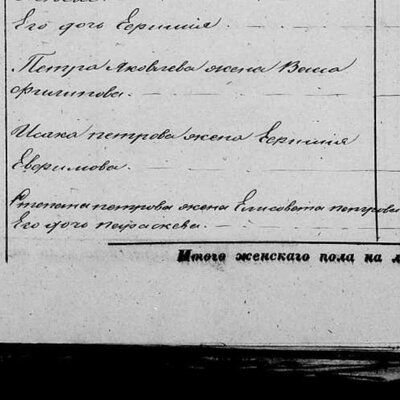 Его дочь Ефимия
Петра Яковлева жена Васса
Филипова.
Исака петрова жена Ефимия
Ефримова.
Степана петрова жена Елисовета петрова
Его дочь параскева.
Итого женскаго пола на